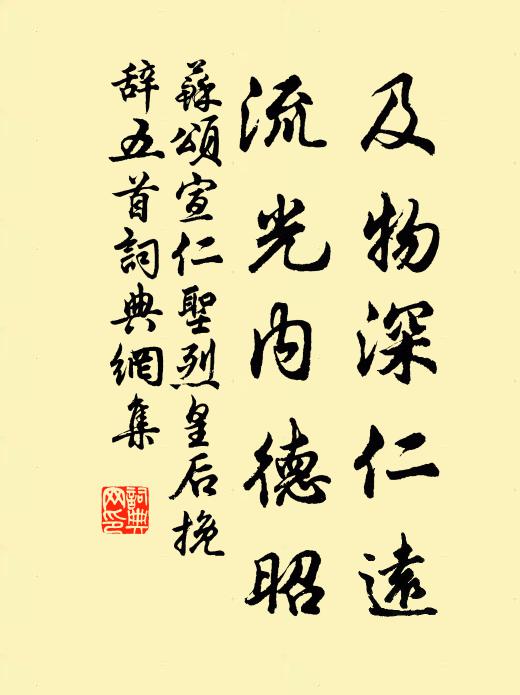 及物深仁遠
流光内德昭
蘇頌宣仁聖烈皇后挽
辞五首詞典網集
詞典网印